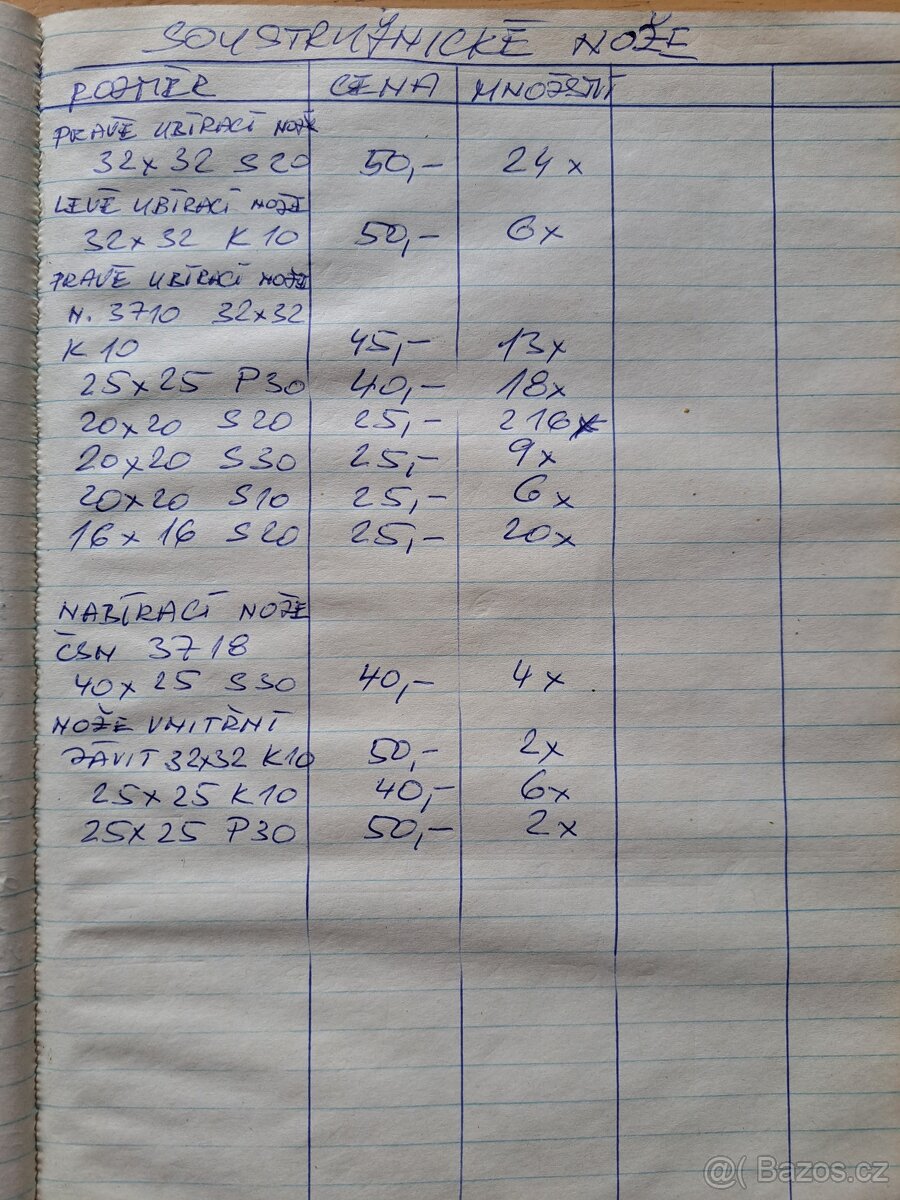 SOUSTRUŽNICKÉ NOŽE
ROZMĚR CENA MNOŽSTVÍ
PRAVÉ UBÍRACÍ NOŽE
32x32 S20 50,- 24x
LEVÉ UBÍRACÍ NOŽE
32x32 K10 50,- 6x
PRAVÉ UBÍRACÍ NOŽE
N. 3710 32x32
K10 45,- 13x
25x25 P30 40,- 18x
20x20 S20 25,- 216x
20x20 S30 25,- 9x
20x20 S10 25,- 6x
16x16 S20 25,- 20x
NABÍRACÍ NOŽE
ČSN 3718
40x25 S30 40,- 4x
NOŽE VNITŘNÍ
ZÁVIT 32x32 K10 50,- 2x
25x25 K10 40,- 6x
25x25 P30 50,- 2x
@( Bazos.cz